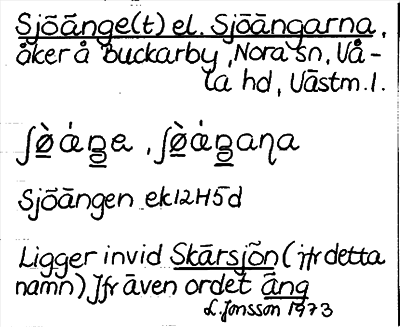 Sjöänge(t) el. Sjöängarna,
åker å Buckarby, Nora sn, Vå-
la hd, Västm.l.
ʃø̀ȧŋe, ʃø̀ȧŋaɳa
Sjöängen ek12H5d
Ligger invid Skärsjön (jfr detta
namn) Jfr även ordet äng
L. Jonsson 1973